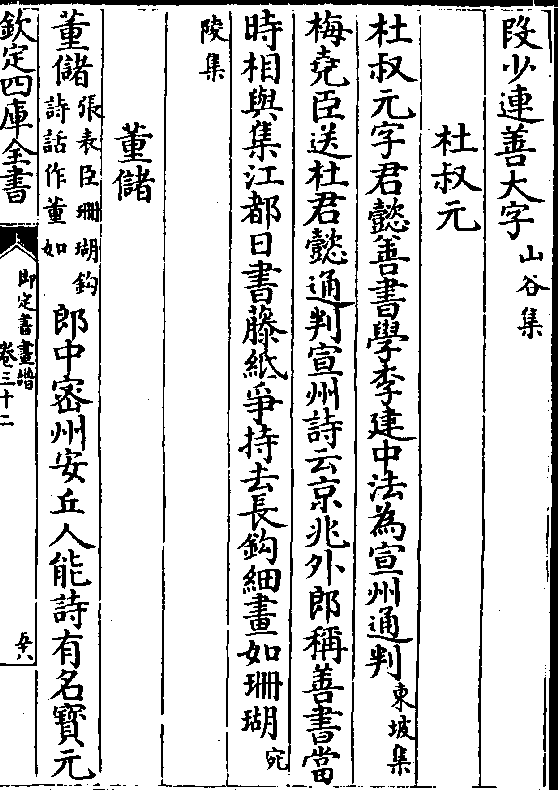 段少連善大字山谷集
杜叔元
杜叔元字君懿善書學李建中法為宣州通判東坡集
梅堯臣送杜君懿通判宣州詩云京兆外郎稱善書當
時相與集江都日書藤紙爭持去長鈎細畫如珊瑚宛
陵集
董儲
董儲張表臣珊瑚鈎詩話作董如郎中密州安丘人能詩有名寶元
欽定四庫全書
御定書畫譜
卷三十二
五八